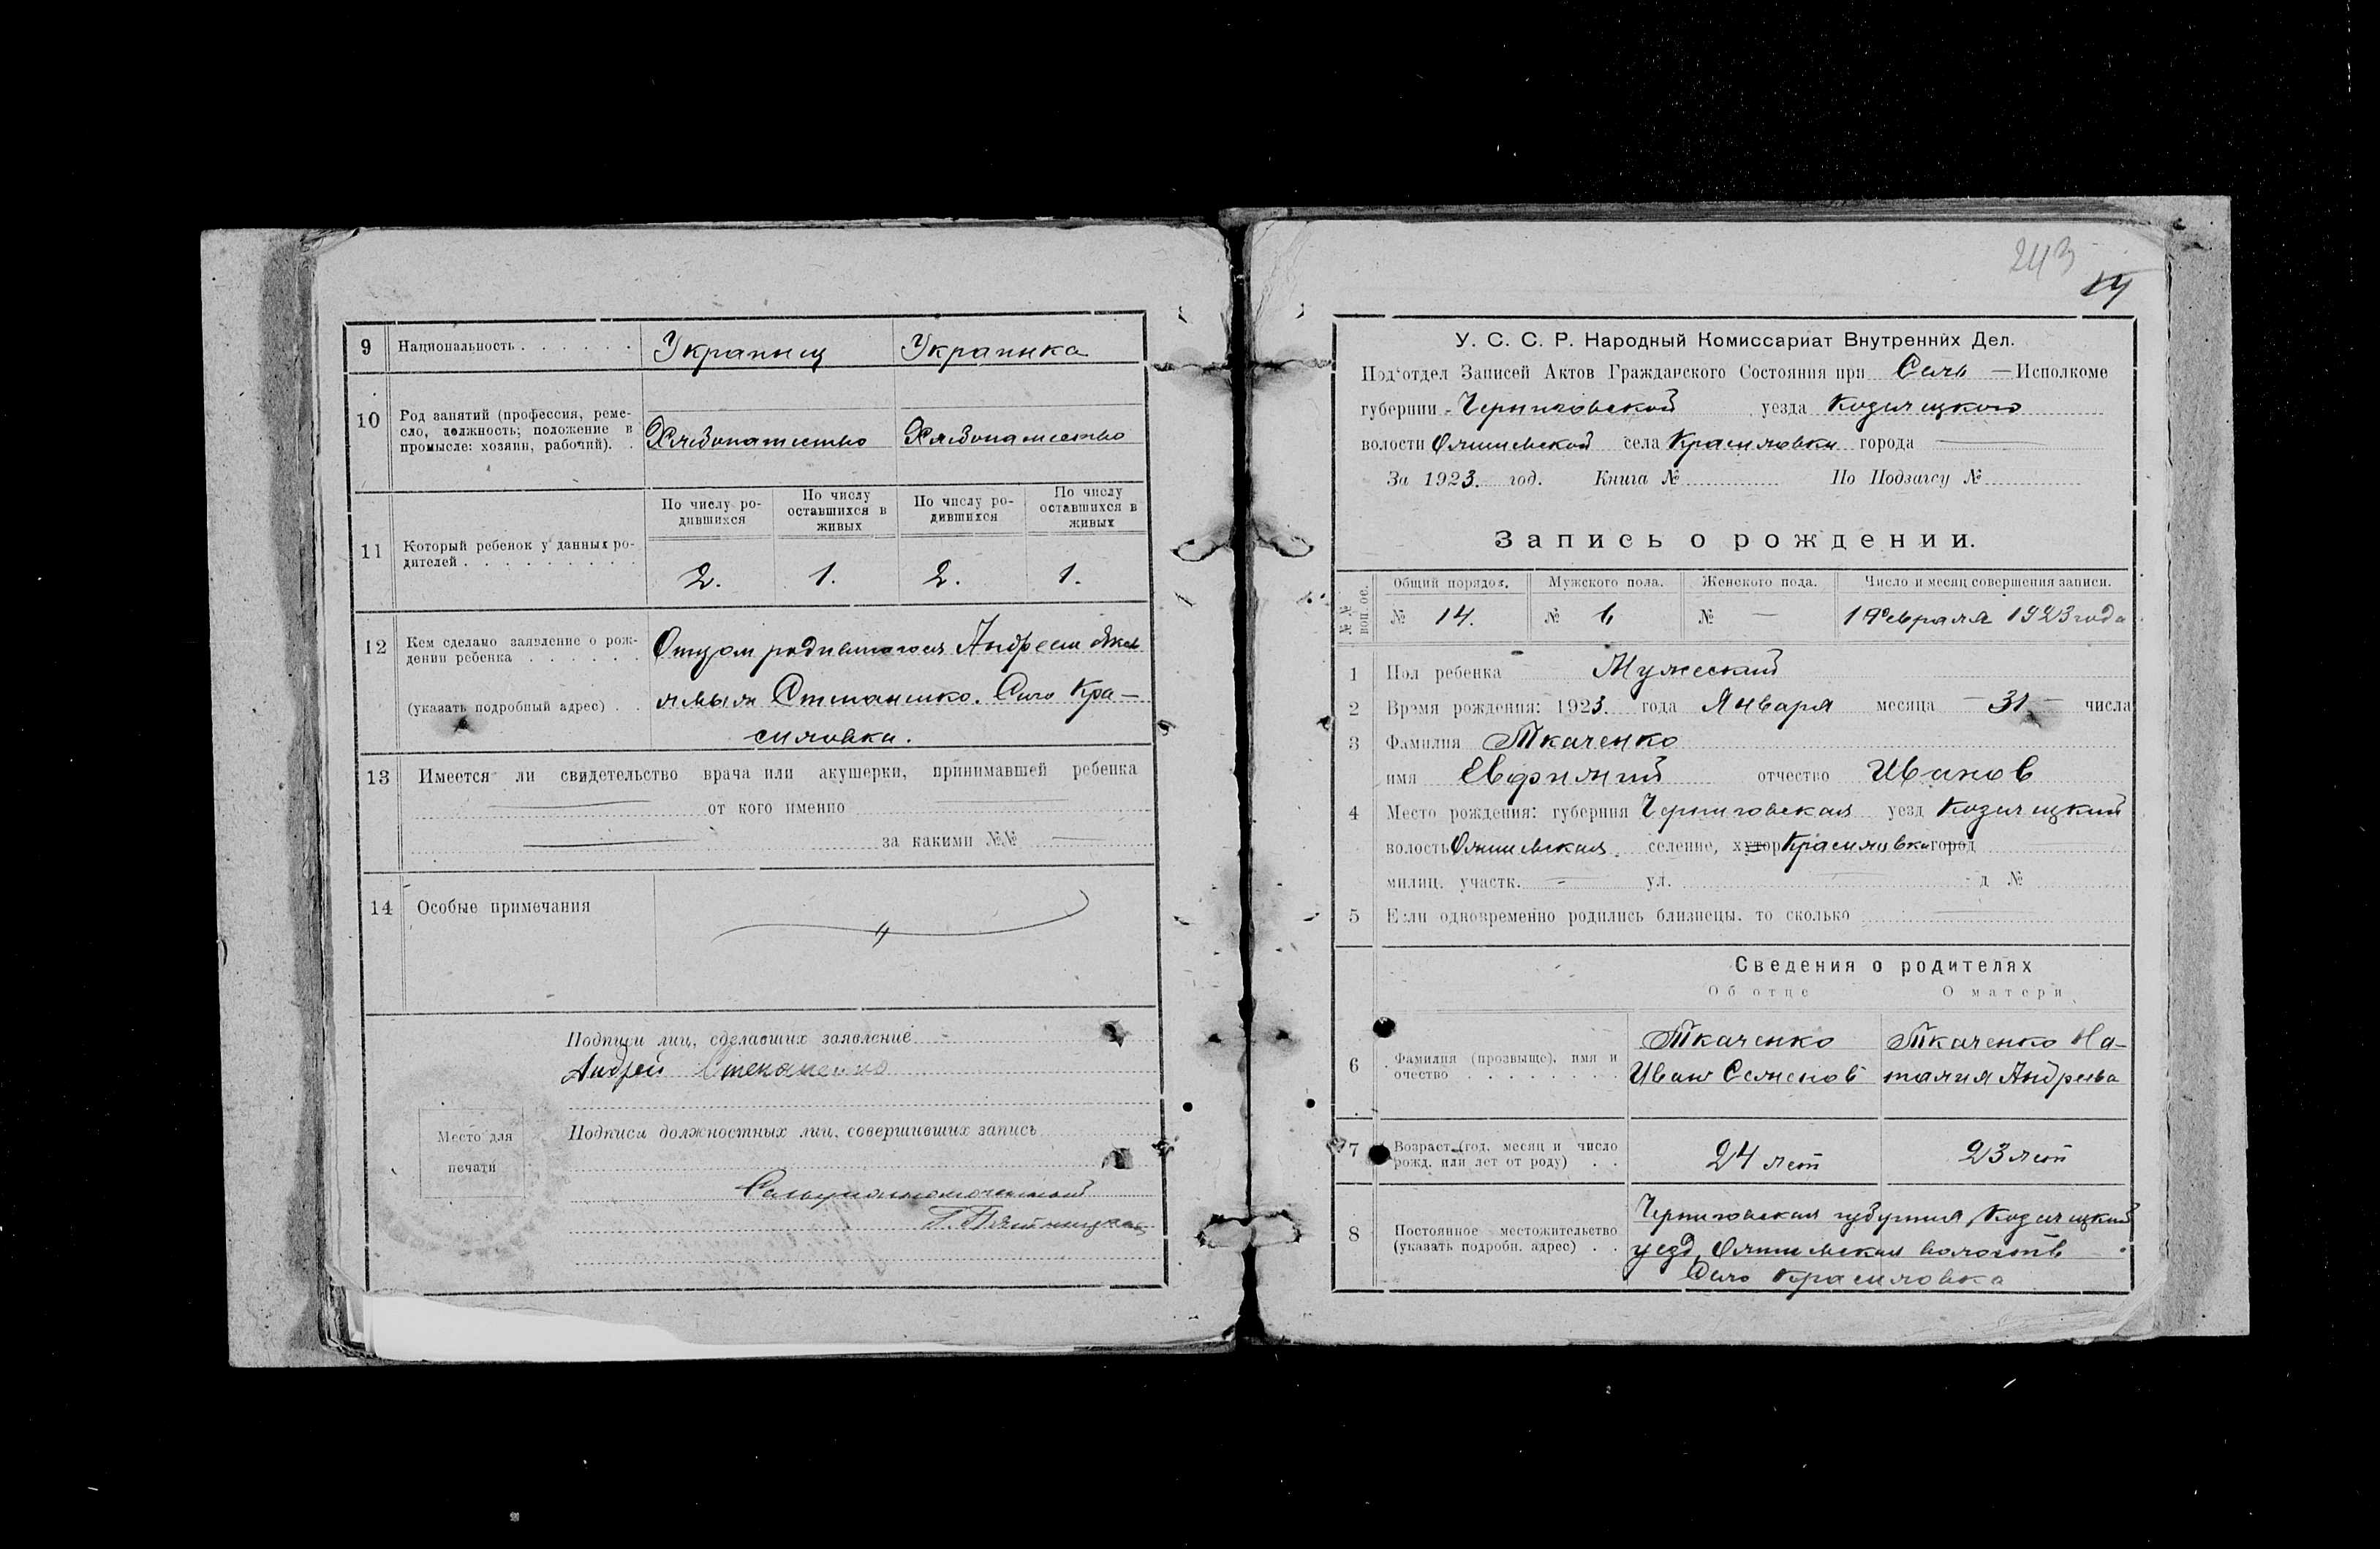 9 Национальность . . . . . . Украинец Украинка
10 Род занятий (профессия, реме-
сло, должность; положение в
промысле: хозяин, рабочий). . Хлебопашество Хлебопашество
По числу ро-
дившихся
По числу
оставшихся в
живых
По числу ро-
дившихся
По числу
оставшихся в
живых
11 Который ребенок у данных ро-
дителей . . . . . . . . . .
2. 1. 2. 1.
12 Кем сделано заявление о рож-
дении ребенка . . . . . . Отцом родившагося Андреем
(указать подробный адрес) . . Степаненко. Село Кра-
силовки.
13 Имеется ли свидетельство врача или акушерки, принимавшей ребенка
от кого именно
за какими №№
14 Особые примечания
Подписи лиц, сделавших заявление
Андрей Степаненко
Место для
печати
Подписи должностных лиц, совершивших запись
Сельуполномоченный
243
14
У. С. С. Р. Народный Комиссариат Внутренних Дел.
Под'отдел Записей Актов Гражданского Состояния при Сель — Исполкоме
губернии Черниговской уезда Козелецкого
волости Олишевской села Красиловки города
За 1923. год. Книга № По Подзагсу №
Запись о рождении.
№№ воп. ос.
Общий порядок. Мужского пола. Женского пола. Число и месяц совершения записи.
№ 14. № 6 № — 1 Февраля 1923 года
1 Пол ребенка Мужеский
2 Время рождения: 1923. года Января месяца — 31 — числа
3 Фамилия Ткаченко
имя Евфимий отчество Иванов
4 Место рождения: губерния Черниговская уезд Козелецкий
волость Олишевская селение, хутор Красиловка город
милиц. участк. — ул. д №
5 Если одновременно родились близнецы, то сколько
Сведения о родителях
Об отце О матери
6 Фамилия (прозвыще), имя и
очество . . . . . . . .
Ткаченко
Иван Семенов
Ткаченко На-
талия Андреева
7 Возраст (год, месяц и число
рожд. или лет от роду) . . 24 лет 23 лет
8 Постоянное местожительство
(указать подробн. адрес) . .
Черниговская губерния, Козелецкий
уезд, Олишевская волость
Село Красиловка